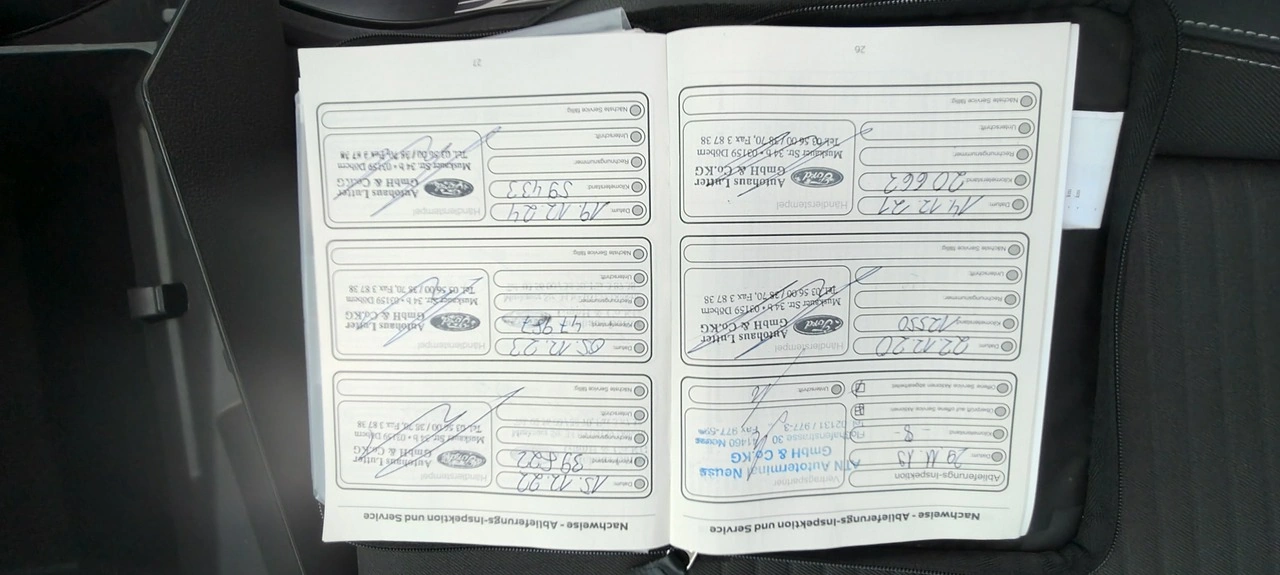 Nachweise - Ablieferungs-Inspektion und Service
Ablieferungs-Inspektion
Datum:
Kilometerstand: -8-
Überprüft auf offene Service Aktionen
Offene Service Aktionen abgearbeitet
Vertragspartner
ATN Autoterminal Neuss
GmbH & Co.KG
30 41460 Neuss
02131 / 977-3 Fax
Unterschrift:
Datum: 22.12.20
Kilometerstand: 12550
Rechnungsnummer:
Unterschrift:
Nächste Service fällig:
Händlerstempel
Autohaus Lutter
GmbH & Co.KG
Ford
Muskauer Str. 34 b • 03159 Döbern
Tel. 03 56 00 / 38 70, Fax 3 87 38
Datum: 14.12.21
Kilometerstand: 20662
Rechnungsnummer:
Unterschrift:
Nächste Service fällig:
Händlerstempel
Autohaus Lutter
GmbH & Co.KG
Ford
Muskauer Str. 34 b • 03159 Döbern
Tel. 03 56 00 / 38 70, Fax 3 87 38
26
Nachweise - Ablieferungs-Inspektion und Service
Datum: 15.12.22
Kilometerstand: 39822
Rechnungsnummer:
Unterschrift:
Nächste Service fällig:
Händlerstempel
Autohaus Lutter
GmbH & Co.KG
Ford
Muskauer Str. 34 b • 03159 Döbern
Tel. 03 56 00 / 38 70, Fax 3 87 38
Datum: 05.12.23
Kilometerstand: 47987
Rechnungsnummer:
Unterschrift:
Nächste Service fällig:
Händlerstempel
Autohaus Lutter
GmbH & Co.KG
Ford
Muskauer Str. 34 b • 03159 Döbern
Tel. 03 56 00 / 38 70, Fax 3 87 38
Datum: 19.12.24
Kilometerstand: 59433
Rechnungsnummer:
Unterschrift:
Nächste Service fällig:
Händlerstempel
Autohaus Lutter
GmbH & Co.KG
Ford
Muskauer Str. 34 b • 03159 Döbern
Tel. 03 56 00 / 38 70, Fax 3 87 38
27